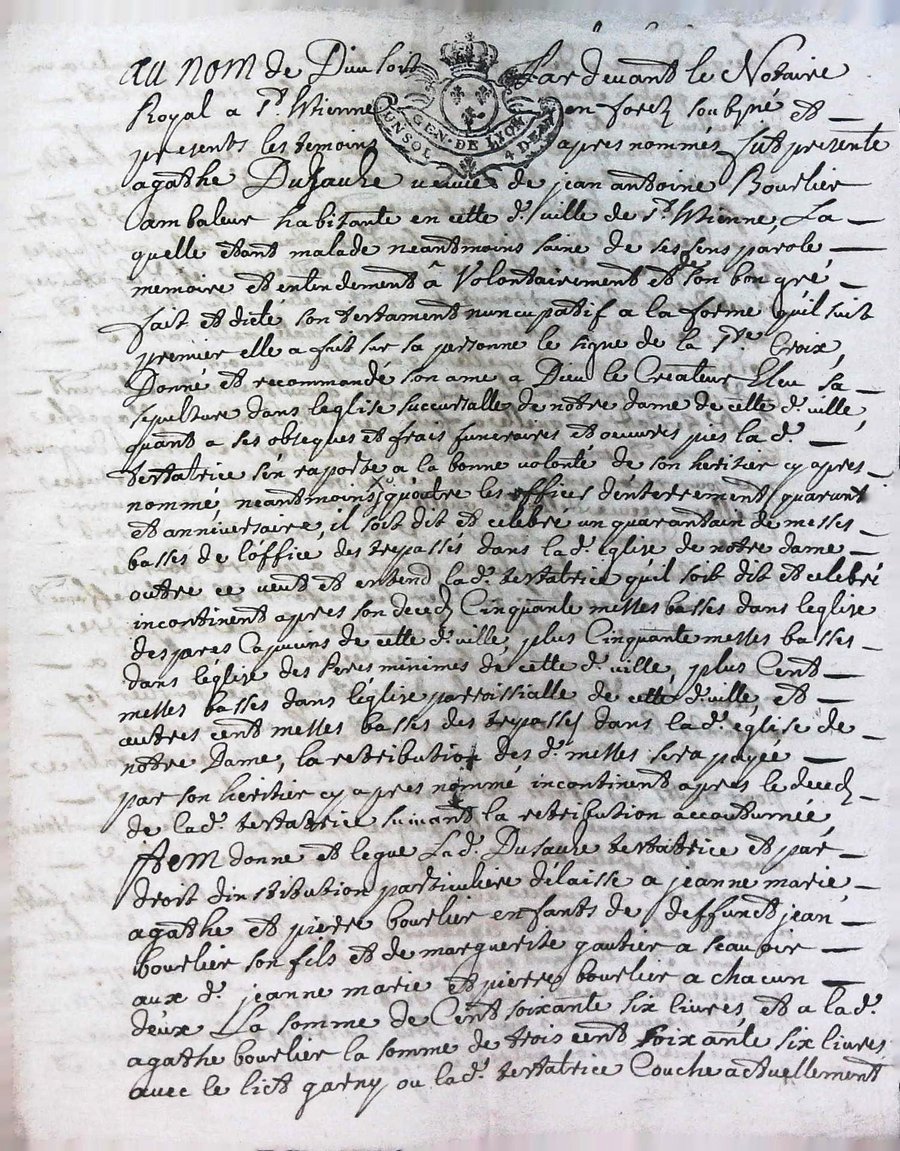 au nom de Dieu soit Pardevant le Notaire
Royal a St. Etienne en forez soubsné et
presents les temoins apres nommés, fut presente
GEN. DE LYON
UN SOL 4 DEN
agathe Dusauze veuve de jean antoine Bourlier
ambaleur habitante en cette d. ville de St. Etienne, La
quelle etant malade neantmoins saine de ses sens parole
memoire et entendement a Volontairement et de son bon gré
fait et dicté son testament nuncupatif a la forme qu'il suit
premier elle a fait sur sa personne le signe de la Ste Croix,
Donné et recommandé son ame a Dieu le Createur Eleu sa
sepulture dans leglise succursalle de notre dame de cette d. ville
quant a ses obseques et frais funeraires et oeuvres pies lad.
testatrice s'en raporte a la bonne volonté de son heritier cy apres
nommé, neantmoins qu'outre les offices d'enterrement, quarant
et anniversaire, il soit dit et celebré un quarantain de messes
basses de l'office des trepassés dans lad. Eglise de notre dame
outre ce veut et entend lad. testatrice qu'il soit dit et celebré
incontinent apres son decedz Cinquante messes basses dans leglise
des peres Capucins de cette d. ville, plus Cinquante messes basses
dans l'eglise des Peres minimes de cette d. ville, plus Cent
messes basses dans l'eglise parroissialle de cette d. ville, et
autres cent messes basses des trepassez dans lad. eglise de
notre Dame, la retribution des d. messes sera payée
par son heritier cy apres nommé incontinent apres le decedz
de lad. testatrice suivant la retribution accoutumée,
Item donne et legue Lad. Dusauze testatrice et par
droit dinstitution particuliere delaisse a jeanne marie
agathe et pierre bourlier enfants de deffunct jean
bourlier son fils et de marguerite gautier a scavoir
aux d. jeanne marie et pierre bourlier a chacun
deux La somme de Cent soixante six livres et a lad.
agathe bourlier la somme de trois cent soixante six livres
avec le lict garny ou lad. testatrice Couche actuellement